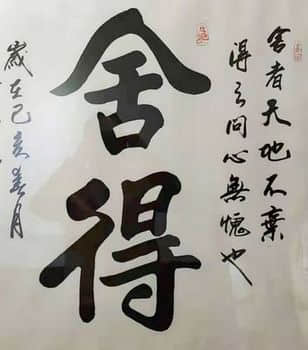 舍者天地不棄
得之问心無愧也
舍得
歲在己亥春月